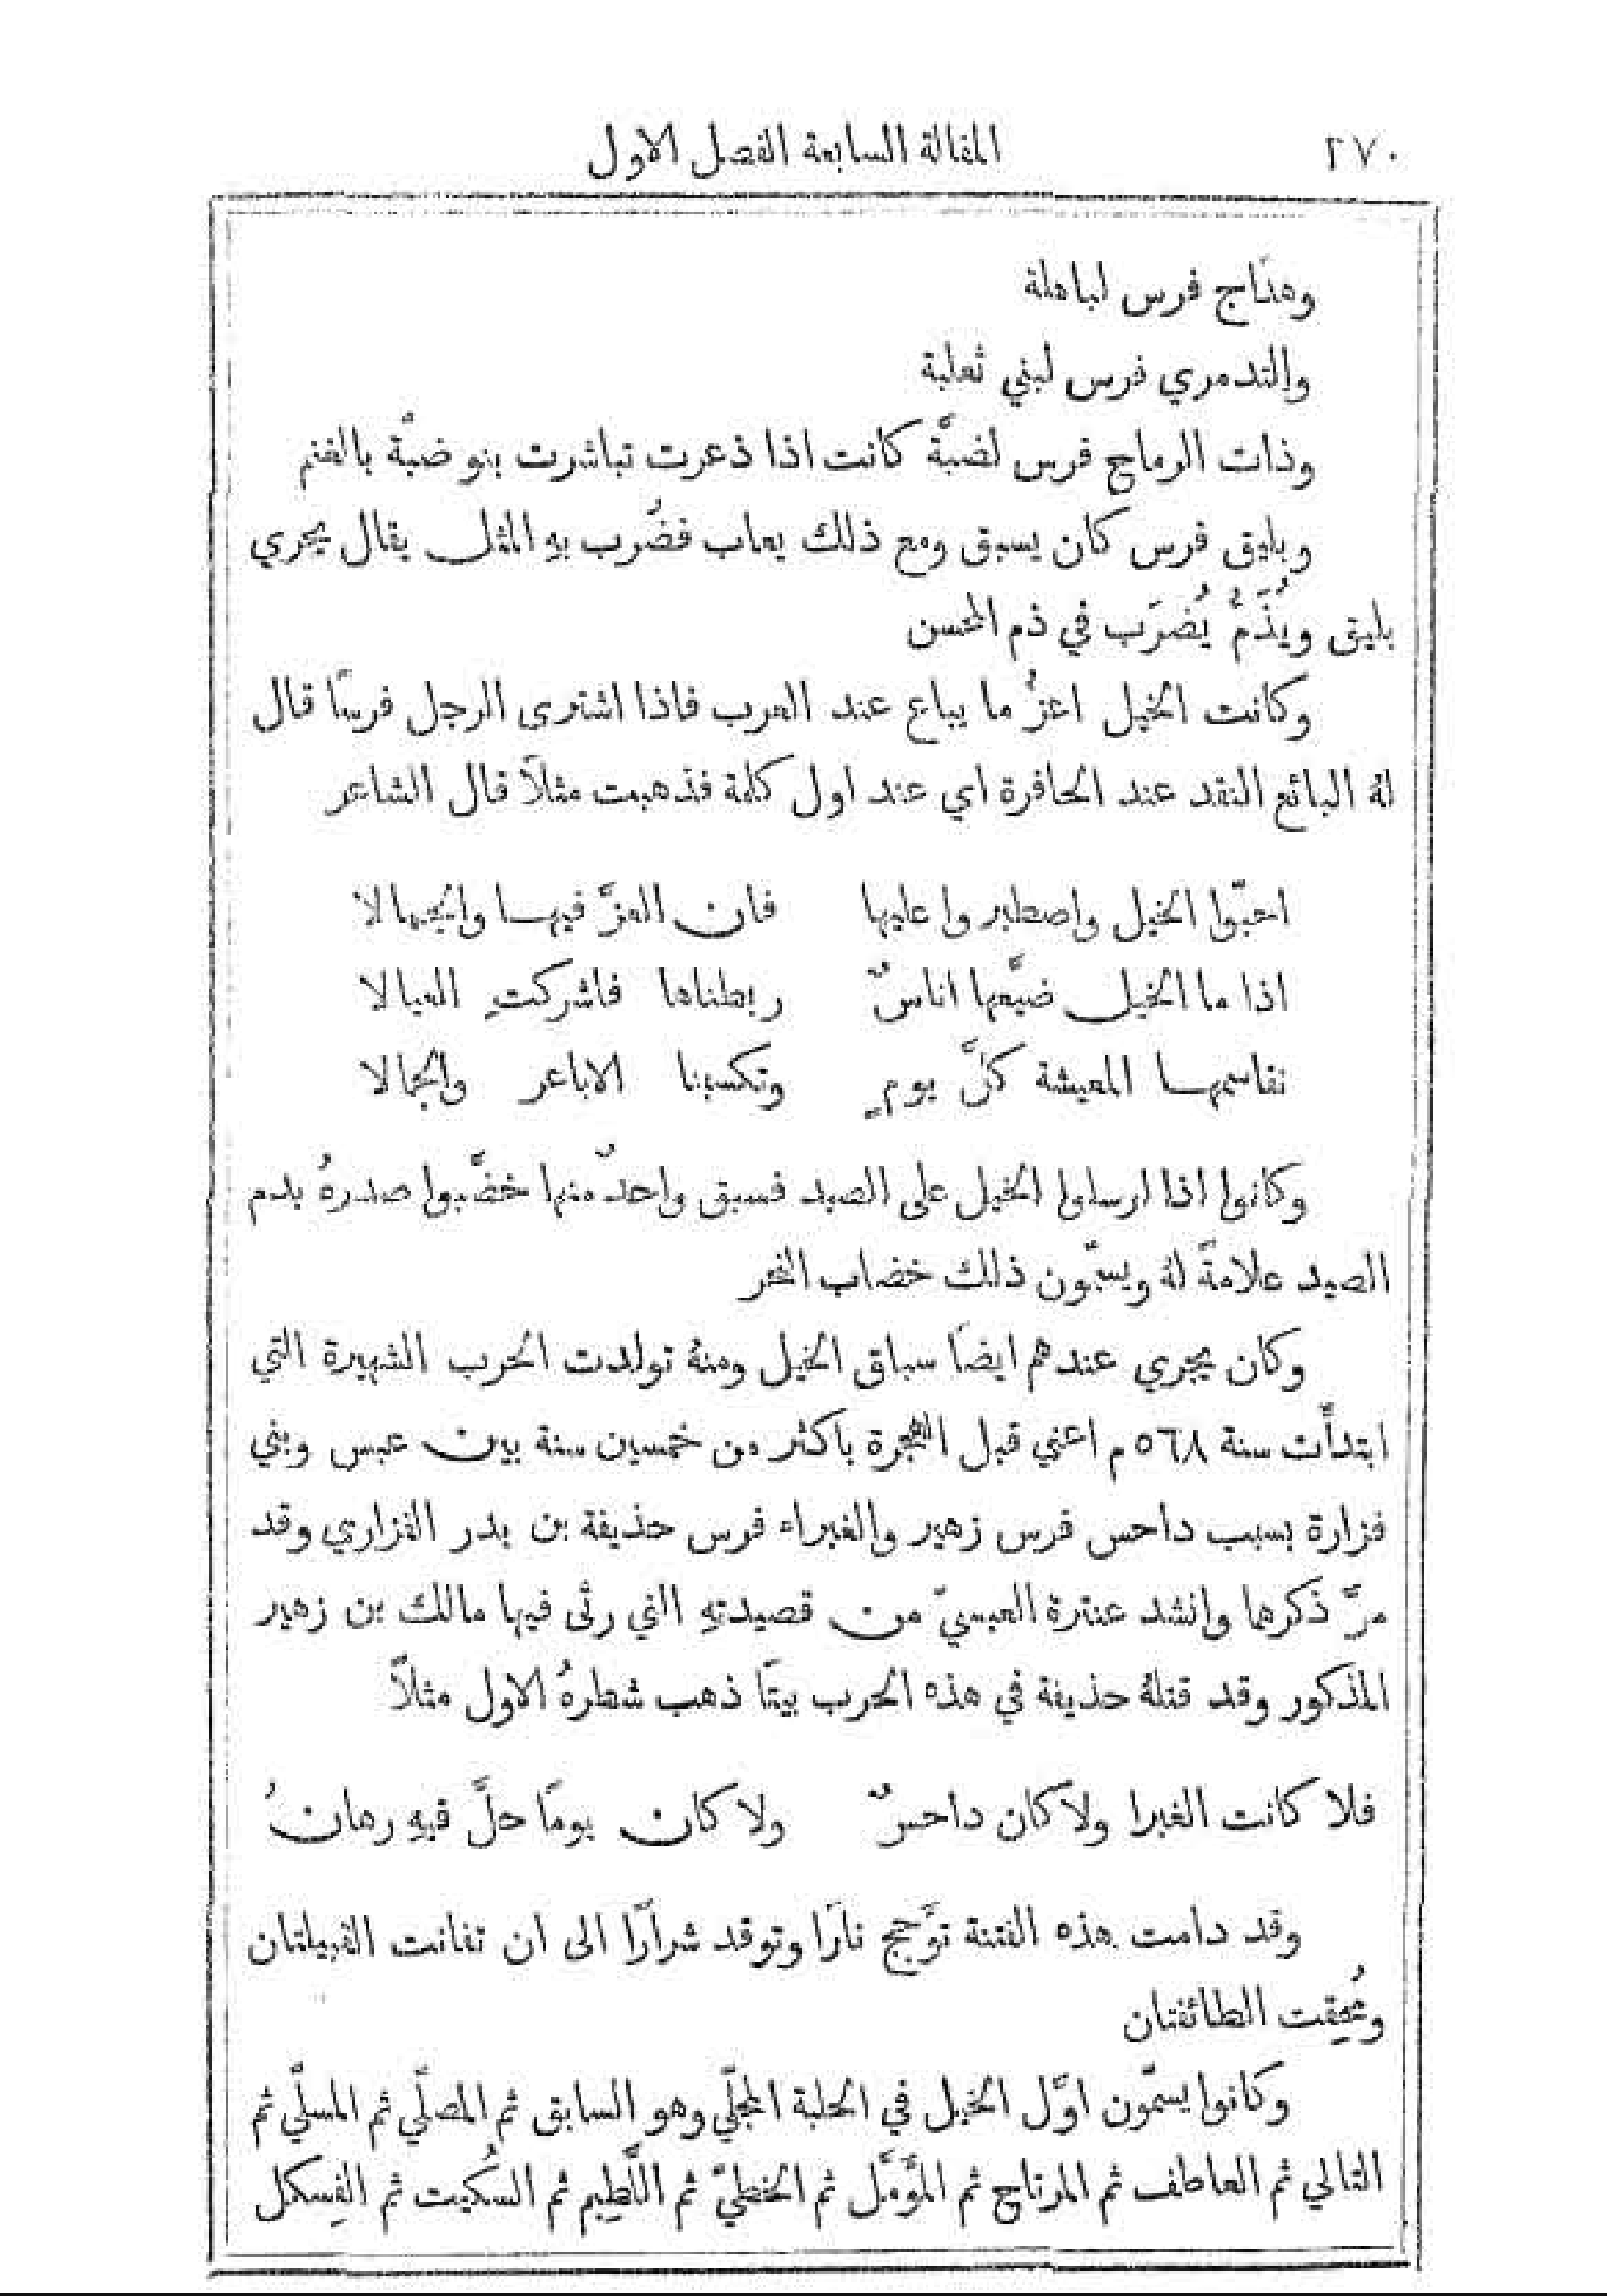 ٢٧٠ المقالة السابعة الفصل الاول
وهدَّاج فرس لباهلة
والتدمري فرس لبني ثعلبة
وذات الرماح فرس لضبَّة كانت اذا ذعرت تباشرت بنو ضبَّة بالغنم
وبليق فرس كان يسبق ومع ذلك يعاب فضُرب بهِ المثل يقال يجري
بليق ويُذَمُّ يُضرَب في ذم المحسن
وكانت الخيل اعزُّ ما يباع عند العرب فاذا اشترى الرجل فرسًا قال
لهُ البائع النقد عند الحافرة اي عند اول كلمة فذهبت مثلًا قال الشاعر
احبّوا الخيل واصطبروا عليها فان العزَّ فيها والجمالا
اذا ما الخيل ضيَّعها اناسٌ ربطناها فاشركتِ العيالا
نقاسمها المعيشة كلَّ يومٍ وتكسبنا الاباعر والجمالا
وكانوا اذا ارسلوا الخيل على الصيد فسبق واحدٌ منها خضَّبوا صدرهُ بدم
الصيد علامةً لهُ ويسمّون ذلك خضاب النحر
وكان يجري عندهم ايضًا سباق الخيل ومنهُ تولدت الحرب الشهيرة التي
ابتدأَت سنة ٥٦٨ م اعني قبل الهجرة باكثر من خمسين سنة بين عبس وبني
فزارة بسبب داحس فرس زهير والغبراء فرس حذيفة بن بدر الفزاري وقد
مرَّ ذكرها وانشد عنترة العبسيّ من قصيدتهِ التي رثى فيها مالك بن زهير
المذكور وقد قتلهُ حذيفة في هذه الحرب بيتًا ذهب شطرهُ الاول مثلًا
فلا كانت الغبرا ولا كان داحسٌ ولا كان يومًا حلَّ فيهِ رهانُ
وقد دامت هذه الفتنة تؤَجج نارًا وتوقد شرارًا الى ان تفانت القبيلتان
ومُحِقت الطائفتان
وكانوا يسمّون اوَّل الخيل في الحلبة المجلّي وهو السابق ثم المصلّي ثم المسلّي ثم
التالي ثم العاطف ثم المرتاح ثم المؤَمَّل ثم الخطيّ ثم اللَّطِيم ثم السُكيت ثم الفِسكل